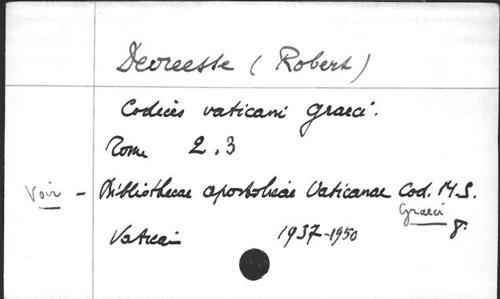 Devreesse (Robert)
Codices vaticani graeci.
Tome 2.3
Voir - Bibliothecae apostolicae Vaticanae Cod. M.S.
Graeci
Vatican 1937-1950